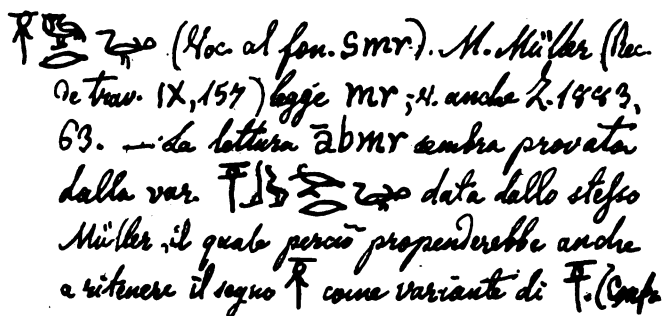 (Voc. al fon. smr). M. Müller (Rec.
de trav. IX, 157) legge mr; v. anche Z. 1883,
63. — La lettura ābmr sembra provata
dalla var. data dallo stesso
Müller, il quale perciò propenderebbe anche
a ritenere il segno come variante di . (Conf.